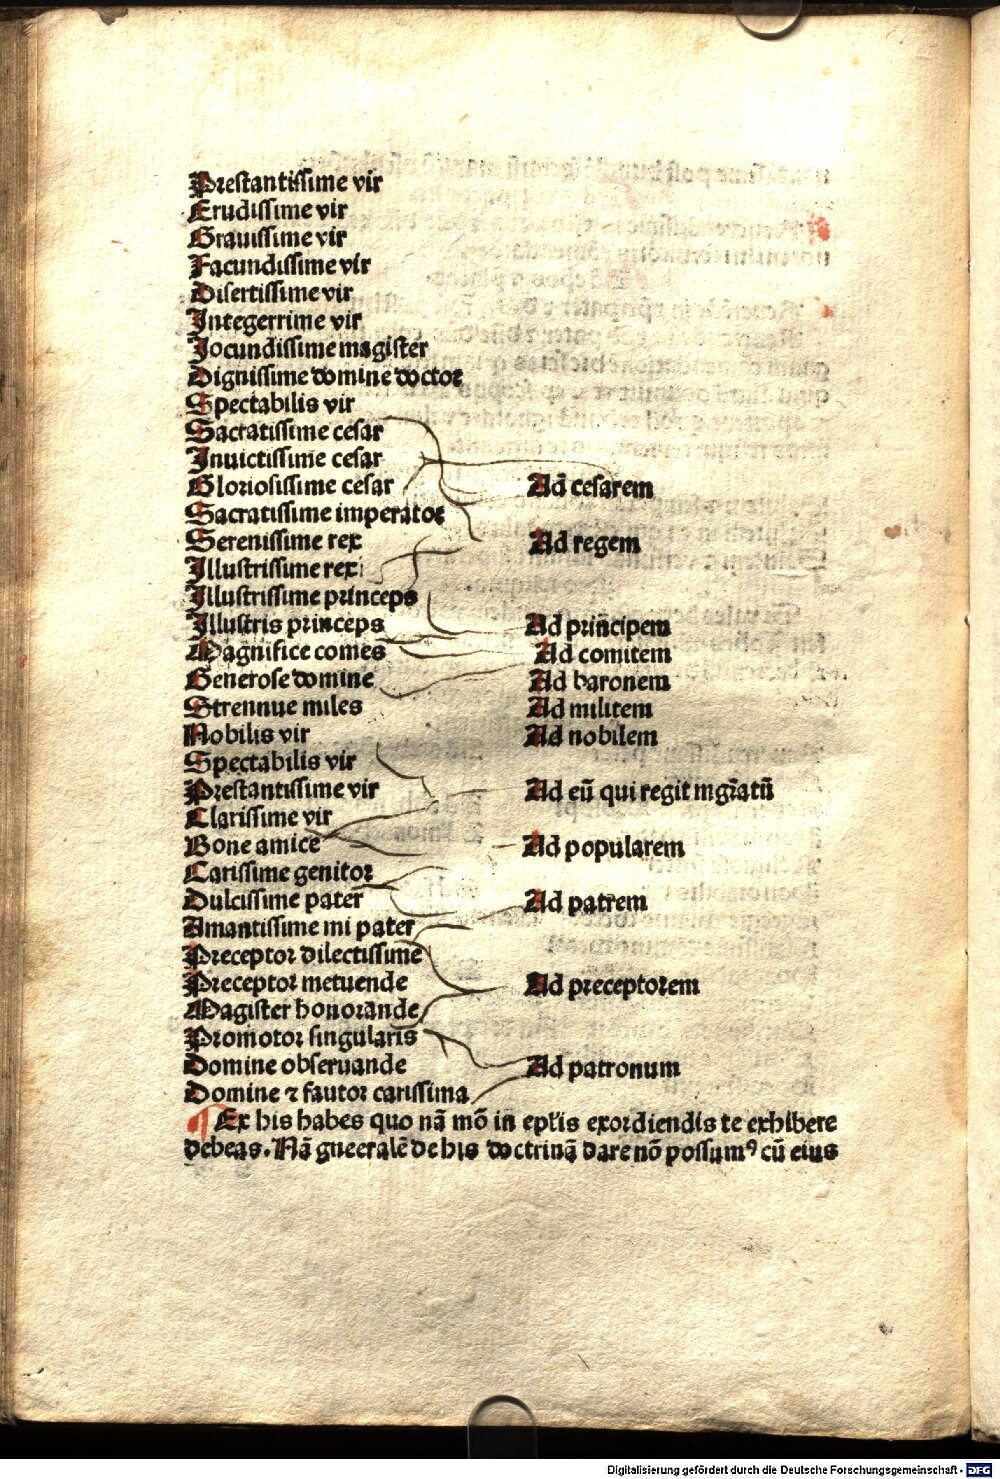 Prestantissime vir
Erudissime vir
Grauissime vir
Facundissime vir
Disertissime vir
Integerrime vir
Jocundissime magister
Dignissime domine doctor
Spectabilis vir
Sacratissime cesar
Inuictissime cesar
Gloriosissime cesar Ad cesarem
Sacratissime imperator
Serenissime rex Ad regem
Illustrissime rex
Illustrissime princeps
Illustris princeps Ad principem
Magnifice comes Ad comitem
Generose domine Ad baronem
Strennue miles Ad militem
Nobilis vir Ad nobilem
Spectabilis vir
Prestantissime vir Ad eū qui regit mgr̄atū
Clarissime vir
Bone amice Ad popularem
Carissime genitor
Dulcissime pater Ad patrem
Amantissime mi pater
Preceptor dilectissime
Preceptor metuende Ad preceptorem
Magister honorande
Promotor singularis
Domine obseruande Ad patronum
Domine ⁊ fautor carissima
¶ Ex his habes quo nā mō in ep̄lis exordiendis te exhibere
debeas. Nā gneeralē de his doctrinā dare nō possumꝰ cū eius
Digitalisierung gefördert durch die Deutsche Forschungsgemeinschaft - DFG